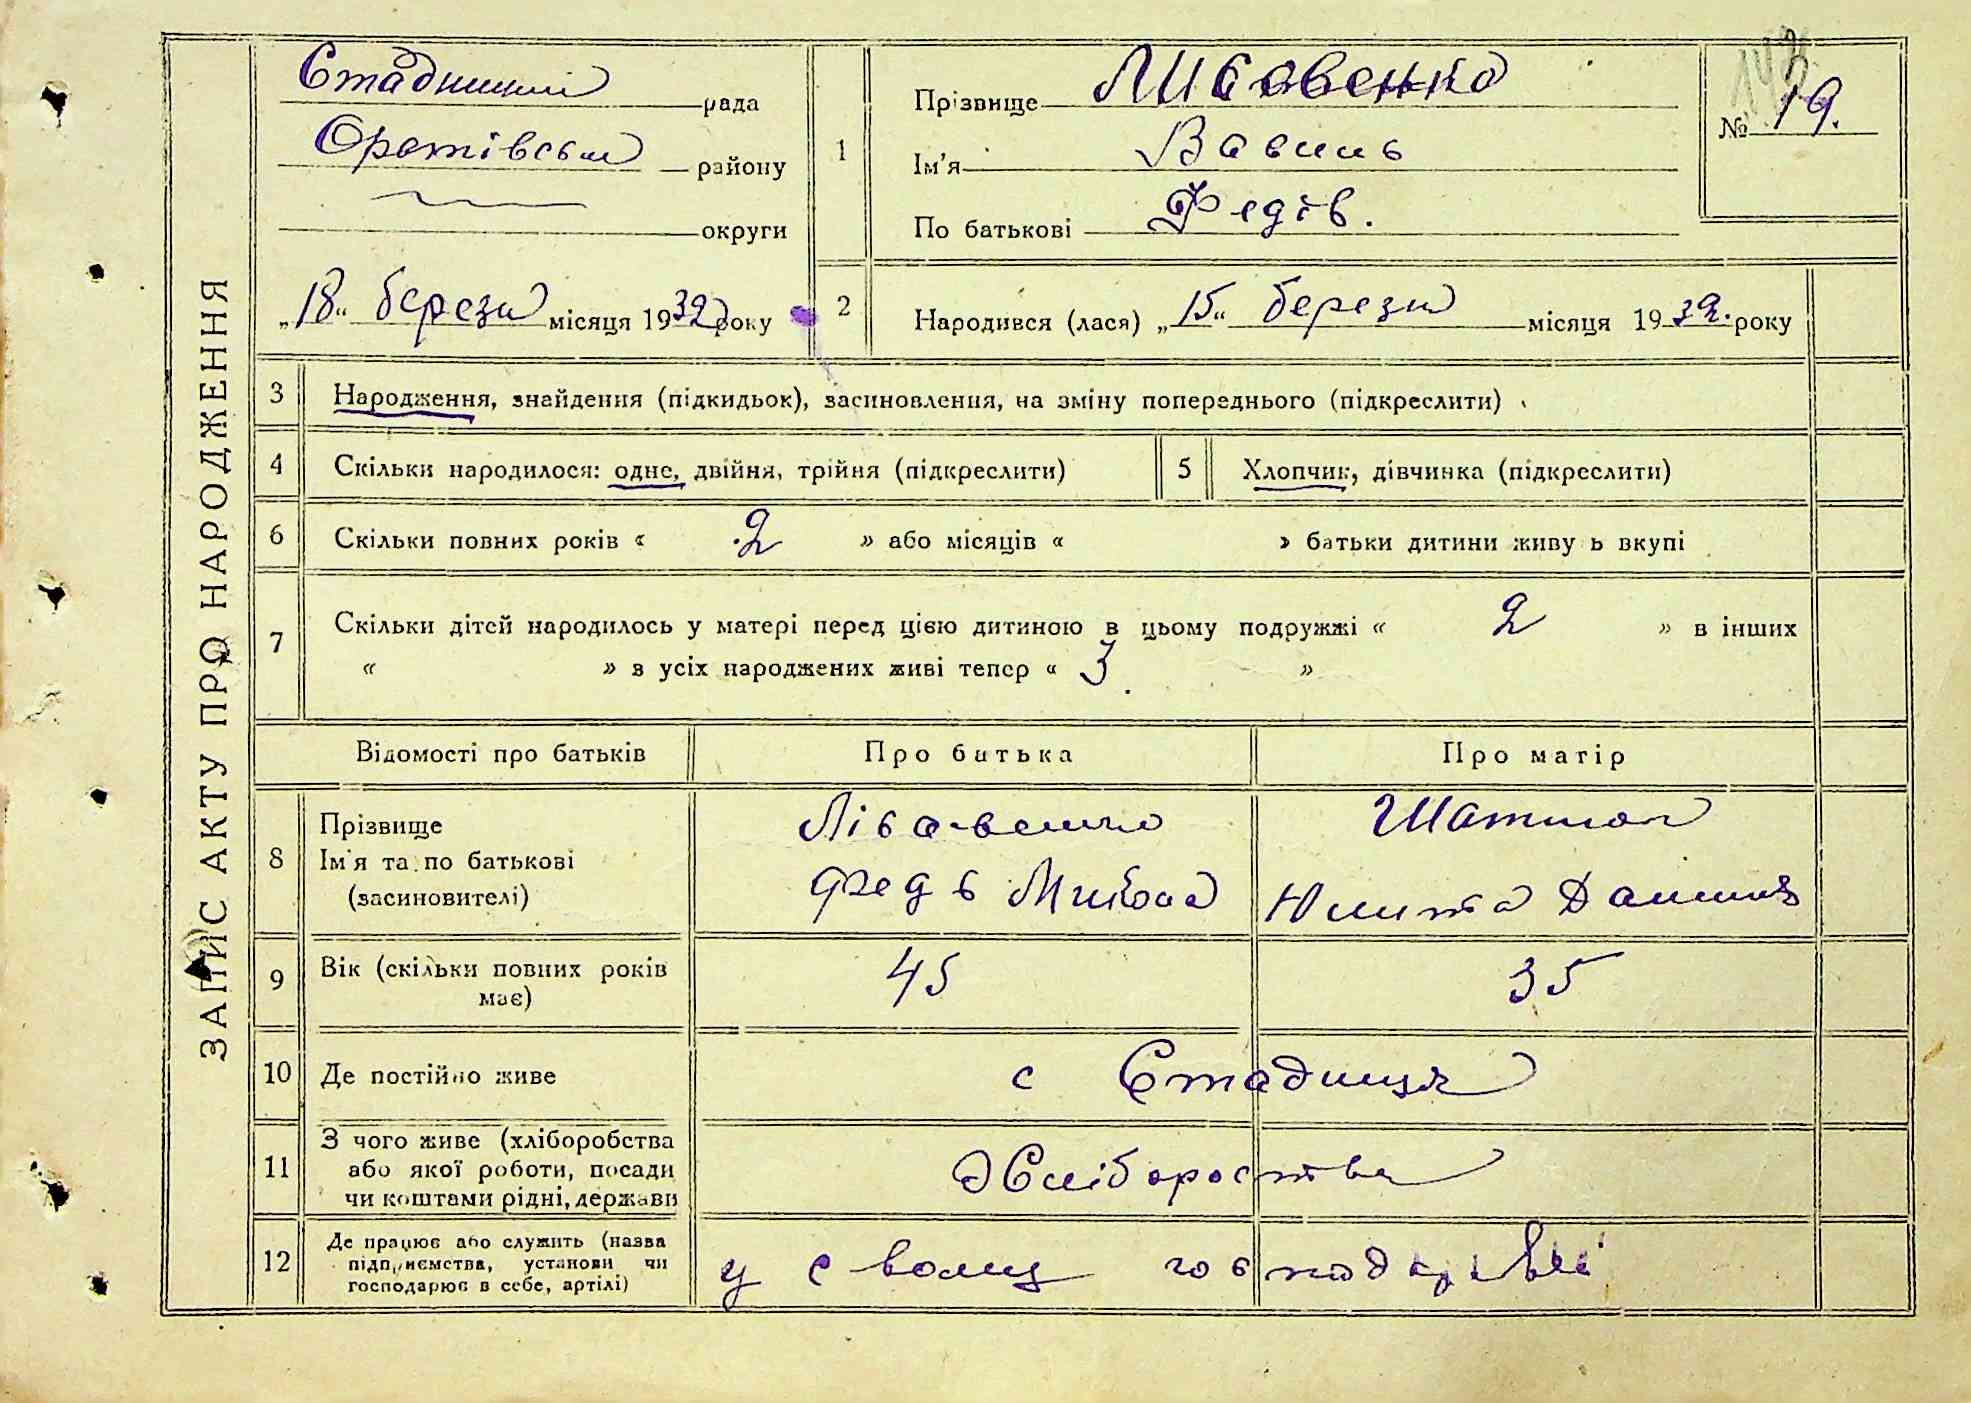 ЗАПИС АКТУ ПРО НАРОДЖЕННЯ
Стадницький рада
Оратівськи району
округи
„18“ берези місяця 1932 року
1
Прізвище Лисовенко
Ім'я Василь
По батькові Федів.
№ 19.
2
Народився (лася) „15“ берези місяця 1932. року
3 Народження, знайдення (підкидьок), засиновлення, на зміну попереднього (підкреслити)
4 Скільки народилося: одне, двійня, трійня (підкреслити)
5 Хлопчик, дівчинка (підкреслити)
6 Скільки повних років « 2 » або місяців « » батьки дитини живу ь вкупі
7 Скільки дітей народилось у матері перед цією дитиною в цьому подружжі « 2 » в інших
« » в усіх народжених живі тепер « 3 »
Відомості про батьків Про батька Про матір
8 Прізвище
Ім'я та по батькові
(засиновителі)
Лісавенко
Федь Микола
9 Вік (скільки повних років
має)
45 35
10 Де постійно живе с Стадниця
11 З чого живе (хліборобства
або якої роботи, посади
чи коштами рідні, держави
з Хлібороства
12 Де працює або служить (назва
підприємства, установи чи
господарює в себе, артілі)
у своему господарстві